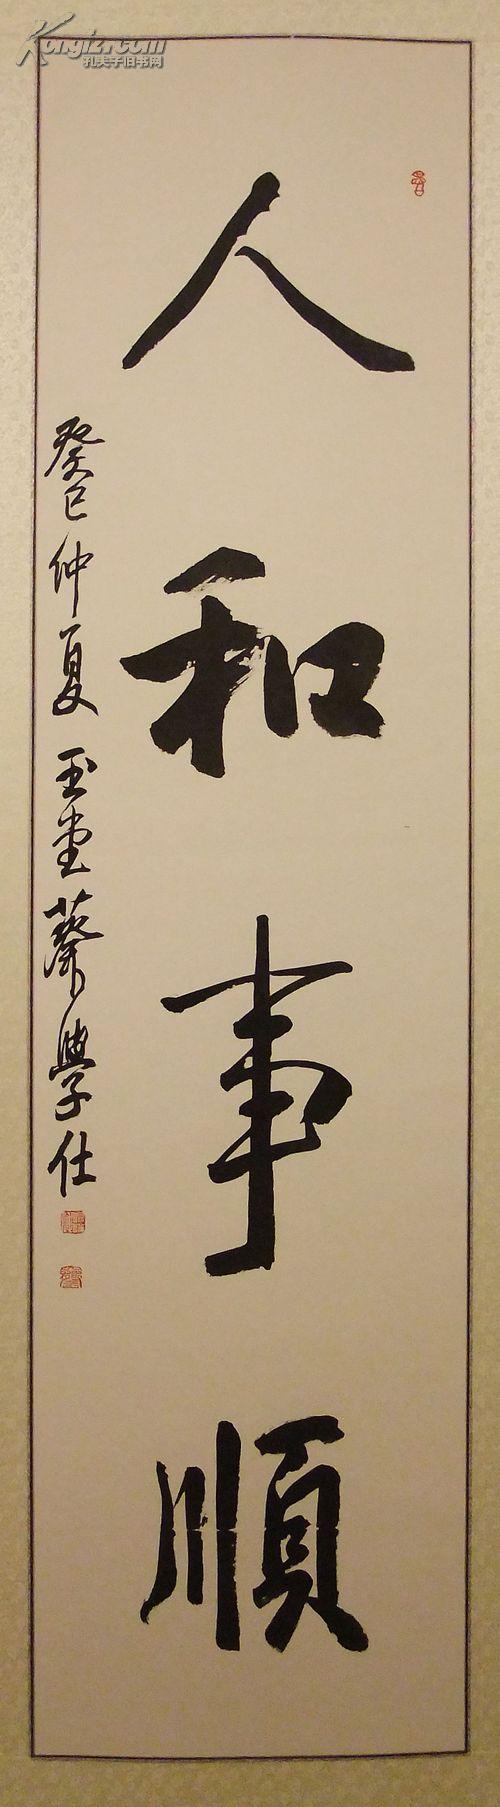 Kongfz.com
孔夫子旧书网
人和事順
癸巳仲夏玉堂蔡學仕